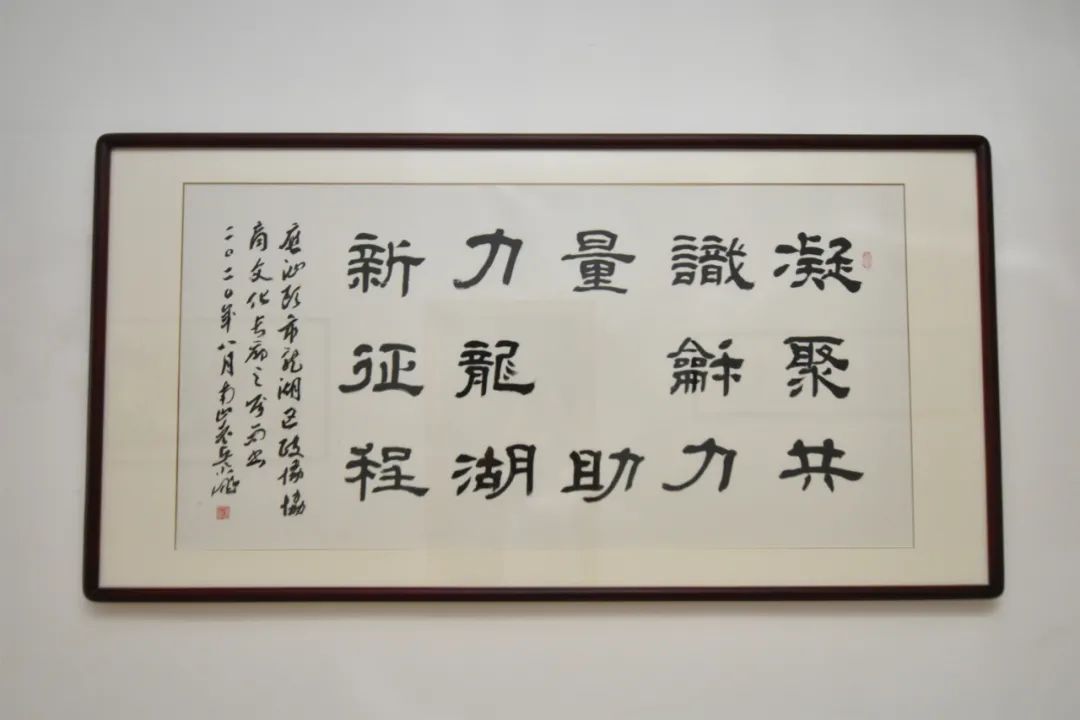 凝聚共
識龢力
量助
力龍湖
新征程
應汕頭市龍湖區政協協
商文化長廊之囑而書
二〇二〇年八月南山